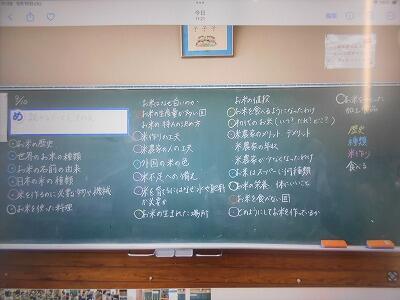 今日
編集
9/10
め
お米の歴史
世界のお米の種類
お米の名前の由来
日本の米の種類
米を作るのに必要な物や機械
お米を使った料理
お米はなぜ白いのか
お米の生産量が多い国
お米の値段の決め方
米作りの工夫
米農家の人の工夫
外国の米の色
米不足への備え
米を育てるにはなぜ水や肥料
が必要か
お米の生まれた場所
お米の値段
お米を食べるようになったわけ
初代のお米(いつ?だれ?どこ?)
米農家のメリット デメリット
米農家の年収
米農家が少なくなったわけ
お米はスーパーに何種類
お米の栄養 体にいいこと
お米を食べない国
どのようにしてお米を作っているか
加工食品
歴史
種類
米作り
食べる